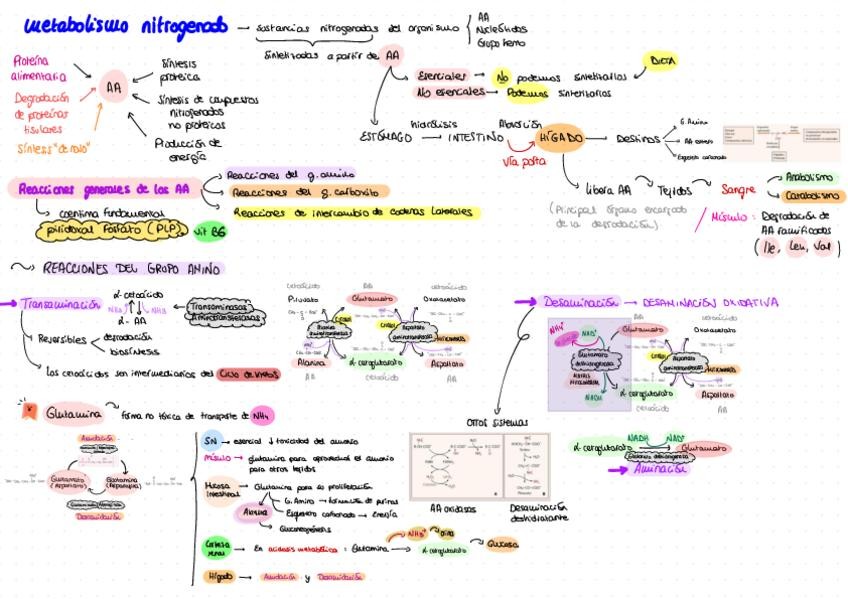 metabolismo nitrogenado
sustancias nitrogenadas del organismo
AA
Nucleótidos
Grupo hemo
sintetizadas a partir de AA
Proteína alimentaria
Degradación de proteínas tisulares
Síntesis "de novo"
AA
Síntesis proteica
Síntesis de compuestos nitrogenados no proteicos
Producción de energía
Esenciales → No podemos sintetizarlos
DIETA
No esenciales → Podemos sintetizarlos
ESTÓMAGO
hidrólisis
INTESTINO
Absorción
vía porta
HÍGADO
Destinos
G. Amino
AA entero
Esqueleto carbonado
Libera AA
Tejidos
Sangre
Anabolismo
Catabolismo
(Principal órgano encargado
de la degradación)
Músculo: Degradación de
AA ramificados
(Ile, Leu, Val)
Reacciones generales de los AA
Reacciones del g. amino
Reacciones del g. carboxilo
Reacciones de intercambio de cadenas laterales
coenzima fundamental
piridoxal fosfato (PLP)
vit B6
REACCIONES DEL GRUPO AMINO
Transaminación
α-cetoácido
NH3
NH3
α-AA
Transaminasas
Aminotransferasas
Reversibles
degradación
biosíntesis
Los cetoácidos son intermediarios del Ciclo de Krebs
cetoácido
AA
cetoácido
Piruvato
Glutamato
Oxalacetato
Citosol
Alanina aminotransferasa
Citosol
Aspartato aminotransferasa
Mitocondria
Alanina
α-cetoglutarato
Aspartato
AA
cetoácido
AA
Desaminación → DESAMINACIÓN OXIDATIVA
NH4+
NAD+
AA
cetoácido
Glutamato
Oxalacetato
Glutamato deshidrogenasa
NADH
Aspartato aminotransferasa
Mitocondria
α-cetoglutarato
Aspartato
cetoácido
AA
Glutamina
forma no tóxica de transporte de NH4
Amidación
Glutamato
(Aspartato)
Glutamina
(Asparagina)
Desamidación
SN → esencial ↓ toxicidad del amonio
Músculo → glutamina para aprovechar el amonio
para otros tejidos
Mucosa intestinal → Glutamina para su proliferación
G. Amino → formación de purinas
Alanina
Esqueleto carbonado → Energía
Gluconeogénesis
Corteza renal → En acidosis metabólica: Glutamina
NH4+
Orina
α-cetoglutarato
Glucosa
Hígado → Amidación y Desamidación
Otros sistemas
AA oxidasas
Desaminación
deshidratante
α-cetoglutarato
NADH
NAD+
Glutamato
Glutamato deshidrogenasa
Aminación